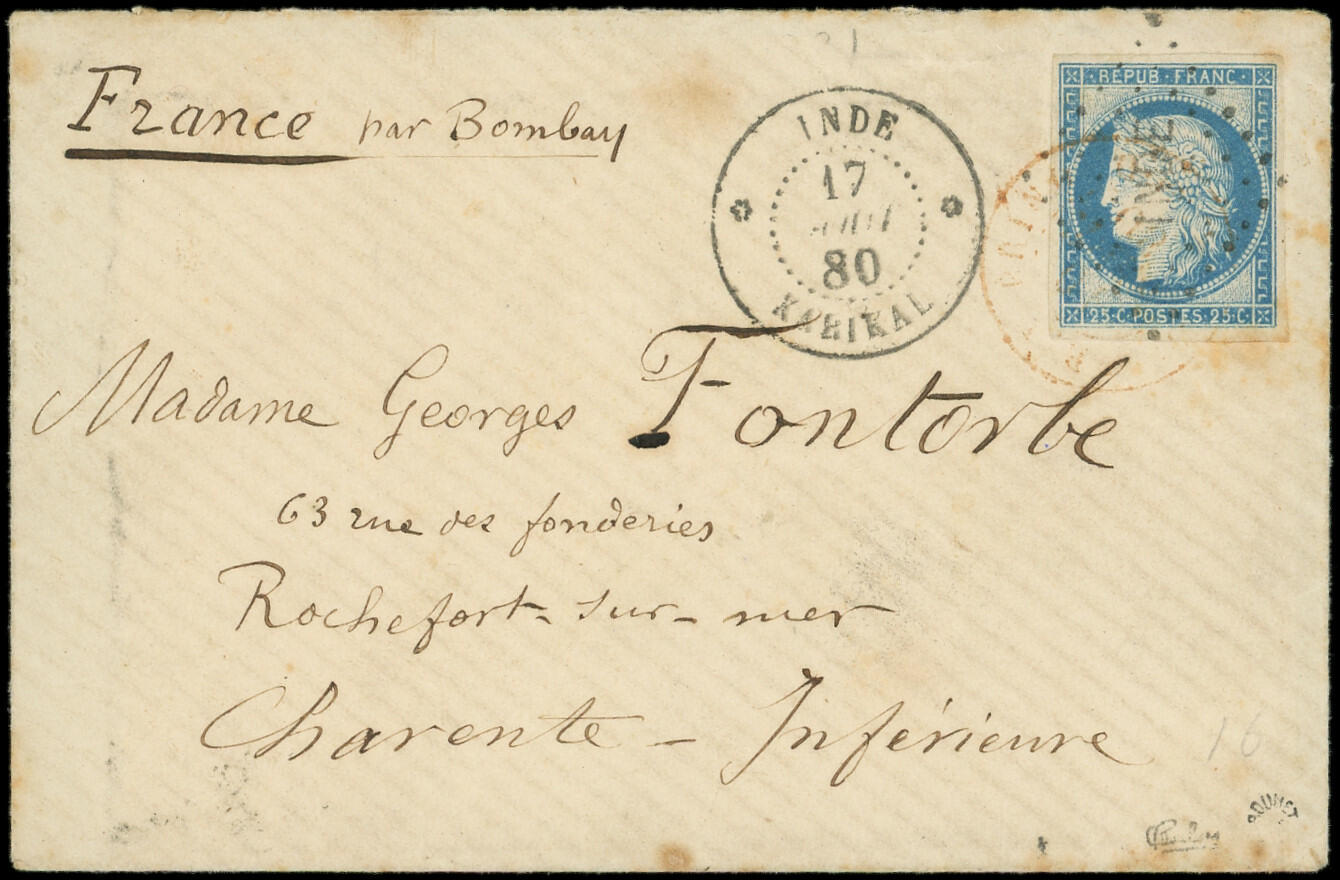 France par Bombay
INDE
17
AOUT
80
KARIKAL
REPUB · FRANC
25 · C · POSTES · 25 · C
Madame Georges Fontorbe
63 rue des fonderies
Rochefort-sur-mer
Charente-Inférieure
16
ROUMET